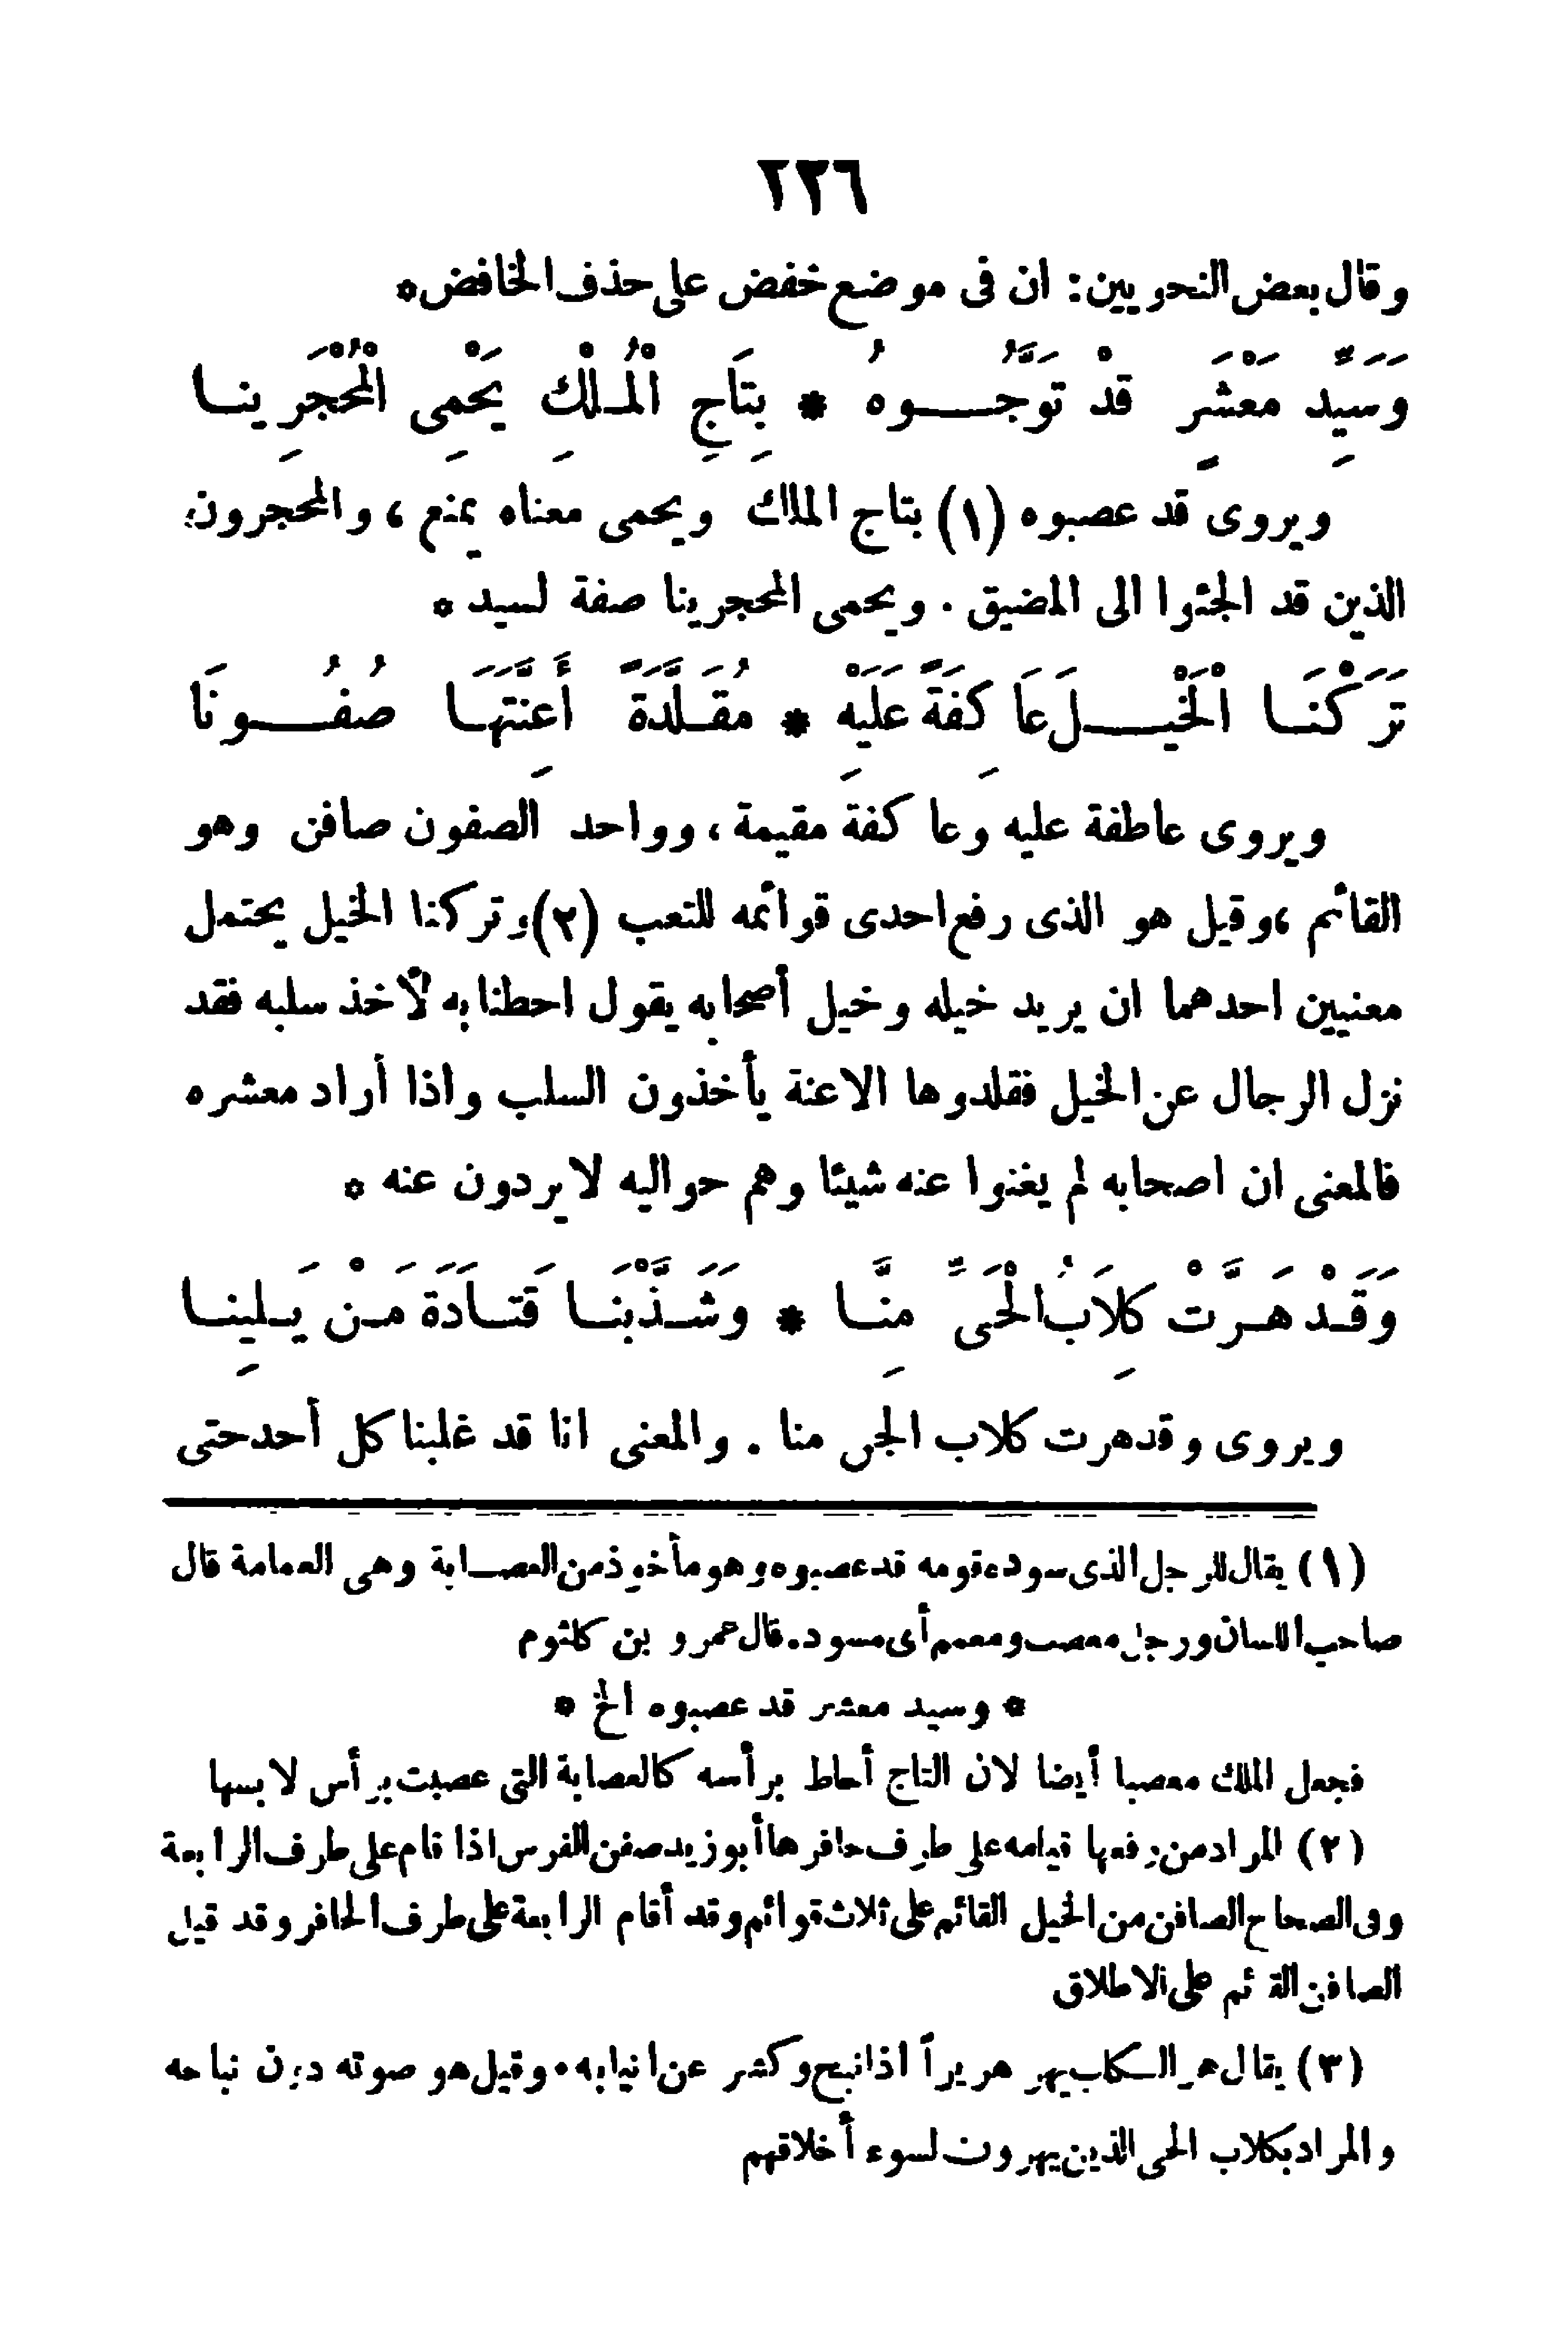 ٢٢٦
وقال بعض النحويين: ان فى موضع خفض على حذف الخافض *
وَسَيِّدِ مَعْشَرٍ قدْ تَوَّجُوهُ * بِتَاجِ الْمُلْكِ يَحْمِى الْمُحْجَرِينا
ويروى قد عصبوه (١) بتاج الملك ويحمى معناه يمنع ، والمحجرون
الذين قد الجئوا الى المضيق . ويحمى المحجرينا صفة لسيد *
تَرَكْنَا الْخَيْلَ عَاكِفَةً عَلَيْهِ * مُقَلَّدَةً أَعِنَّتَهَا صُفُونَا
ويروى عاطفة عليه وعاكفة مقيمة ، وواحد الصفون صافن وهو
القائم ، وقيل هو الذى رفع احدى قوائمه للتعب (٢) وتركنا الخيل يحتمل
معنيين احدهما ان يريد خيله وخيل أصحابه يقول احطنا به لأخذ سلبه فقد
نزل الرجال عن الخيل فقلدوها الاعنة يأخذون السلب واذا أراد معشره
فالمعنى ان اصحابه لم يغنوا عنه شيئا وهم حواليه لا يردون عنه *
وَقَدْ هَرَّتْ كِلَابُ الْحَىِّ مِنَّا * وَشَذَّبْنَا قَتَادَةَ مَنْ يَلِينا
ويروى وقد هرت كلاب الجن منا . والمعنى انا قد غلبنا كل أحد حتى
(١) يقال للرجل الذى سوده قومه قد عصبوه وهو مأخوذ من العصابة وهى العمامة قال
صاحب اللسان ورجل معصب ومعمم أى مسود . قال عمرو بن كلثوم
* وسيد معشر قد عصبوه الخ *
فجعل الملك معصبا أيضا لان التاج أحاط برأسه كالعصابة التى عصبت برأس لابسها
(٢) المراد من رفعها قيامه على طرف حافرها أبو زيد صفن الفرس اذا قام على طرف الرابعة
وفى الصحاح الصافن من الخيل القائم على ثلاث قوائم وقد أقام الرابعة على طرف الحافر وقد قيل
الصافن القائم على الاطلاق
(٣) يقال هر الكلب يهر هريراً اذا نبح وكشر عن انيابه . وقيل هو صوته دون نباحه
والمراد بكلاب الحى الذين يهرون لسوء أخلاقهم